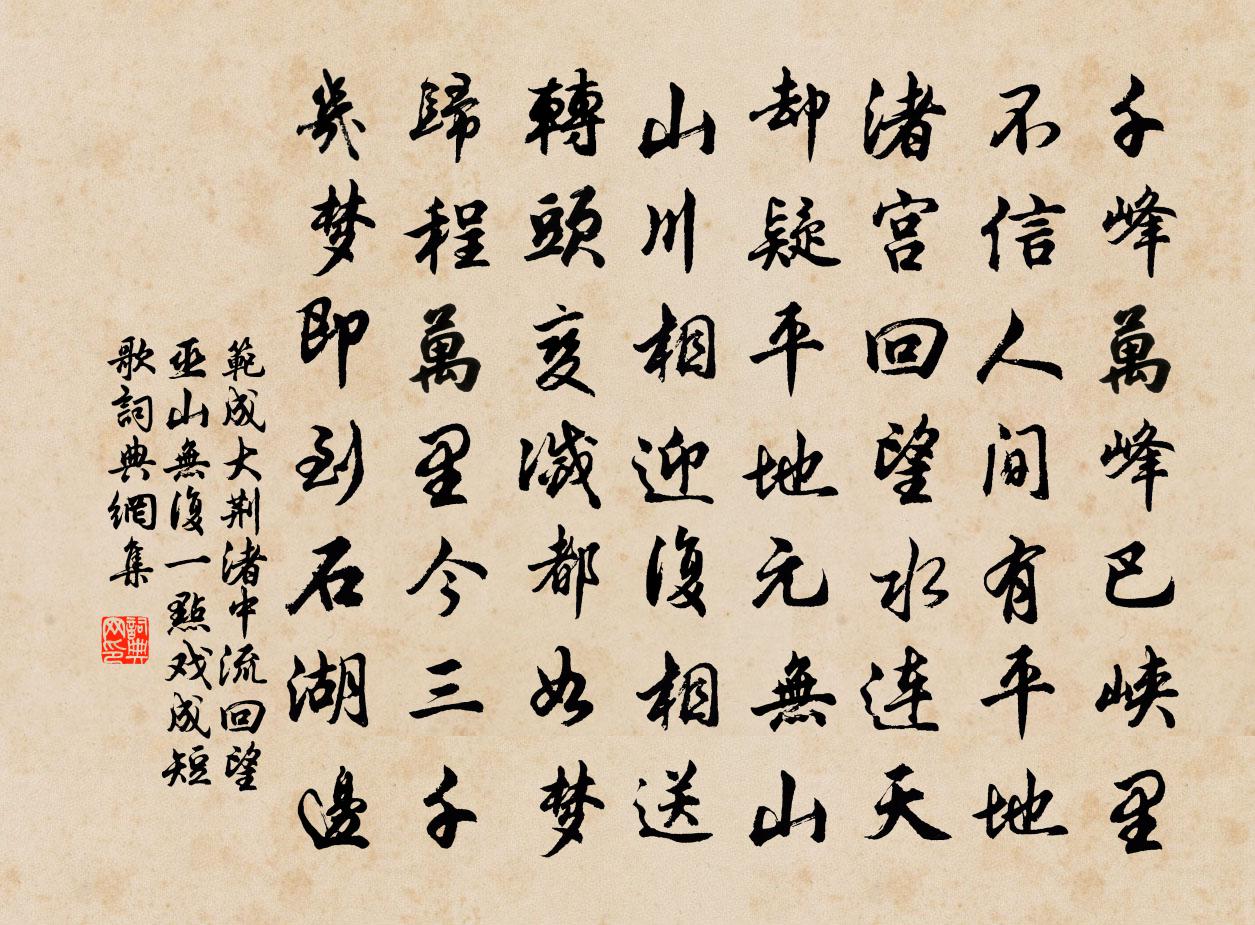 千峰萬峰巴峽里
不信人间有平地
渚宫回望水连天
却疑平地元無山
山川相迎復相送
轉頭变滅都如梦
歸程萬里今三千
幾梦即到石湖邊
範成大荆渚中流回望
巫山無復一點戏成短
歌詞典網集
詞典网印